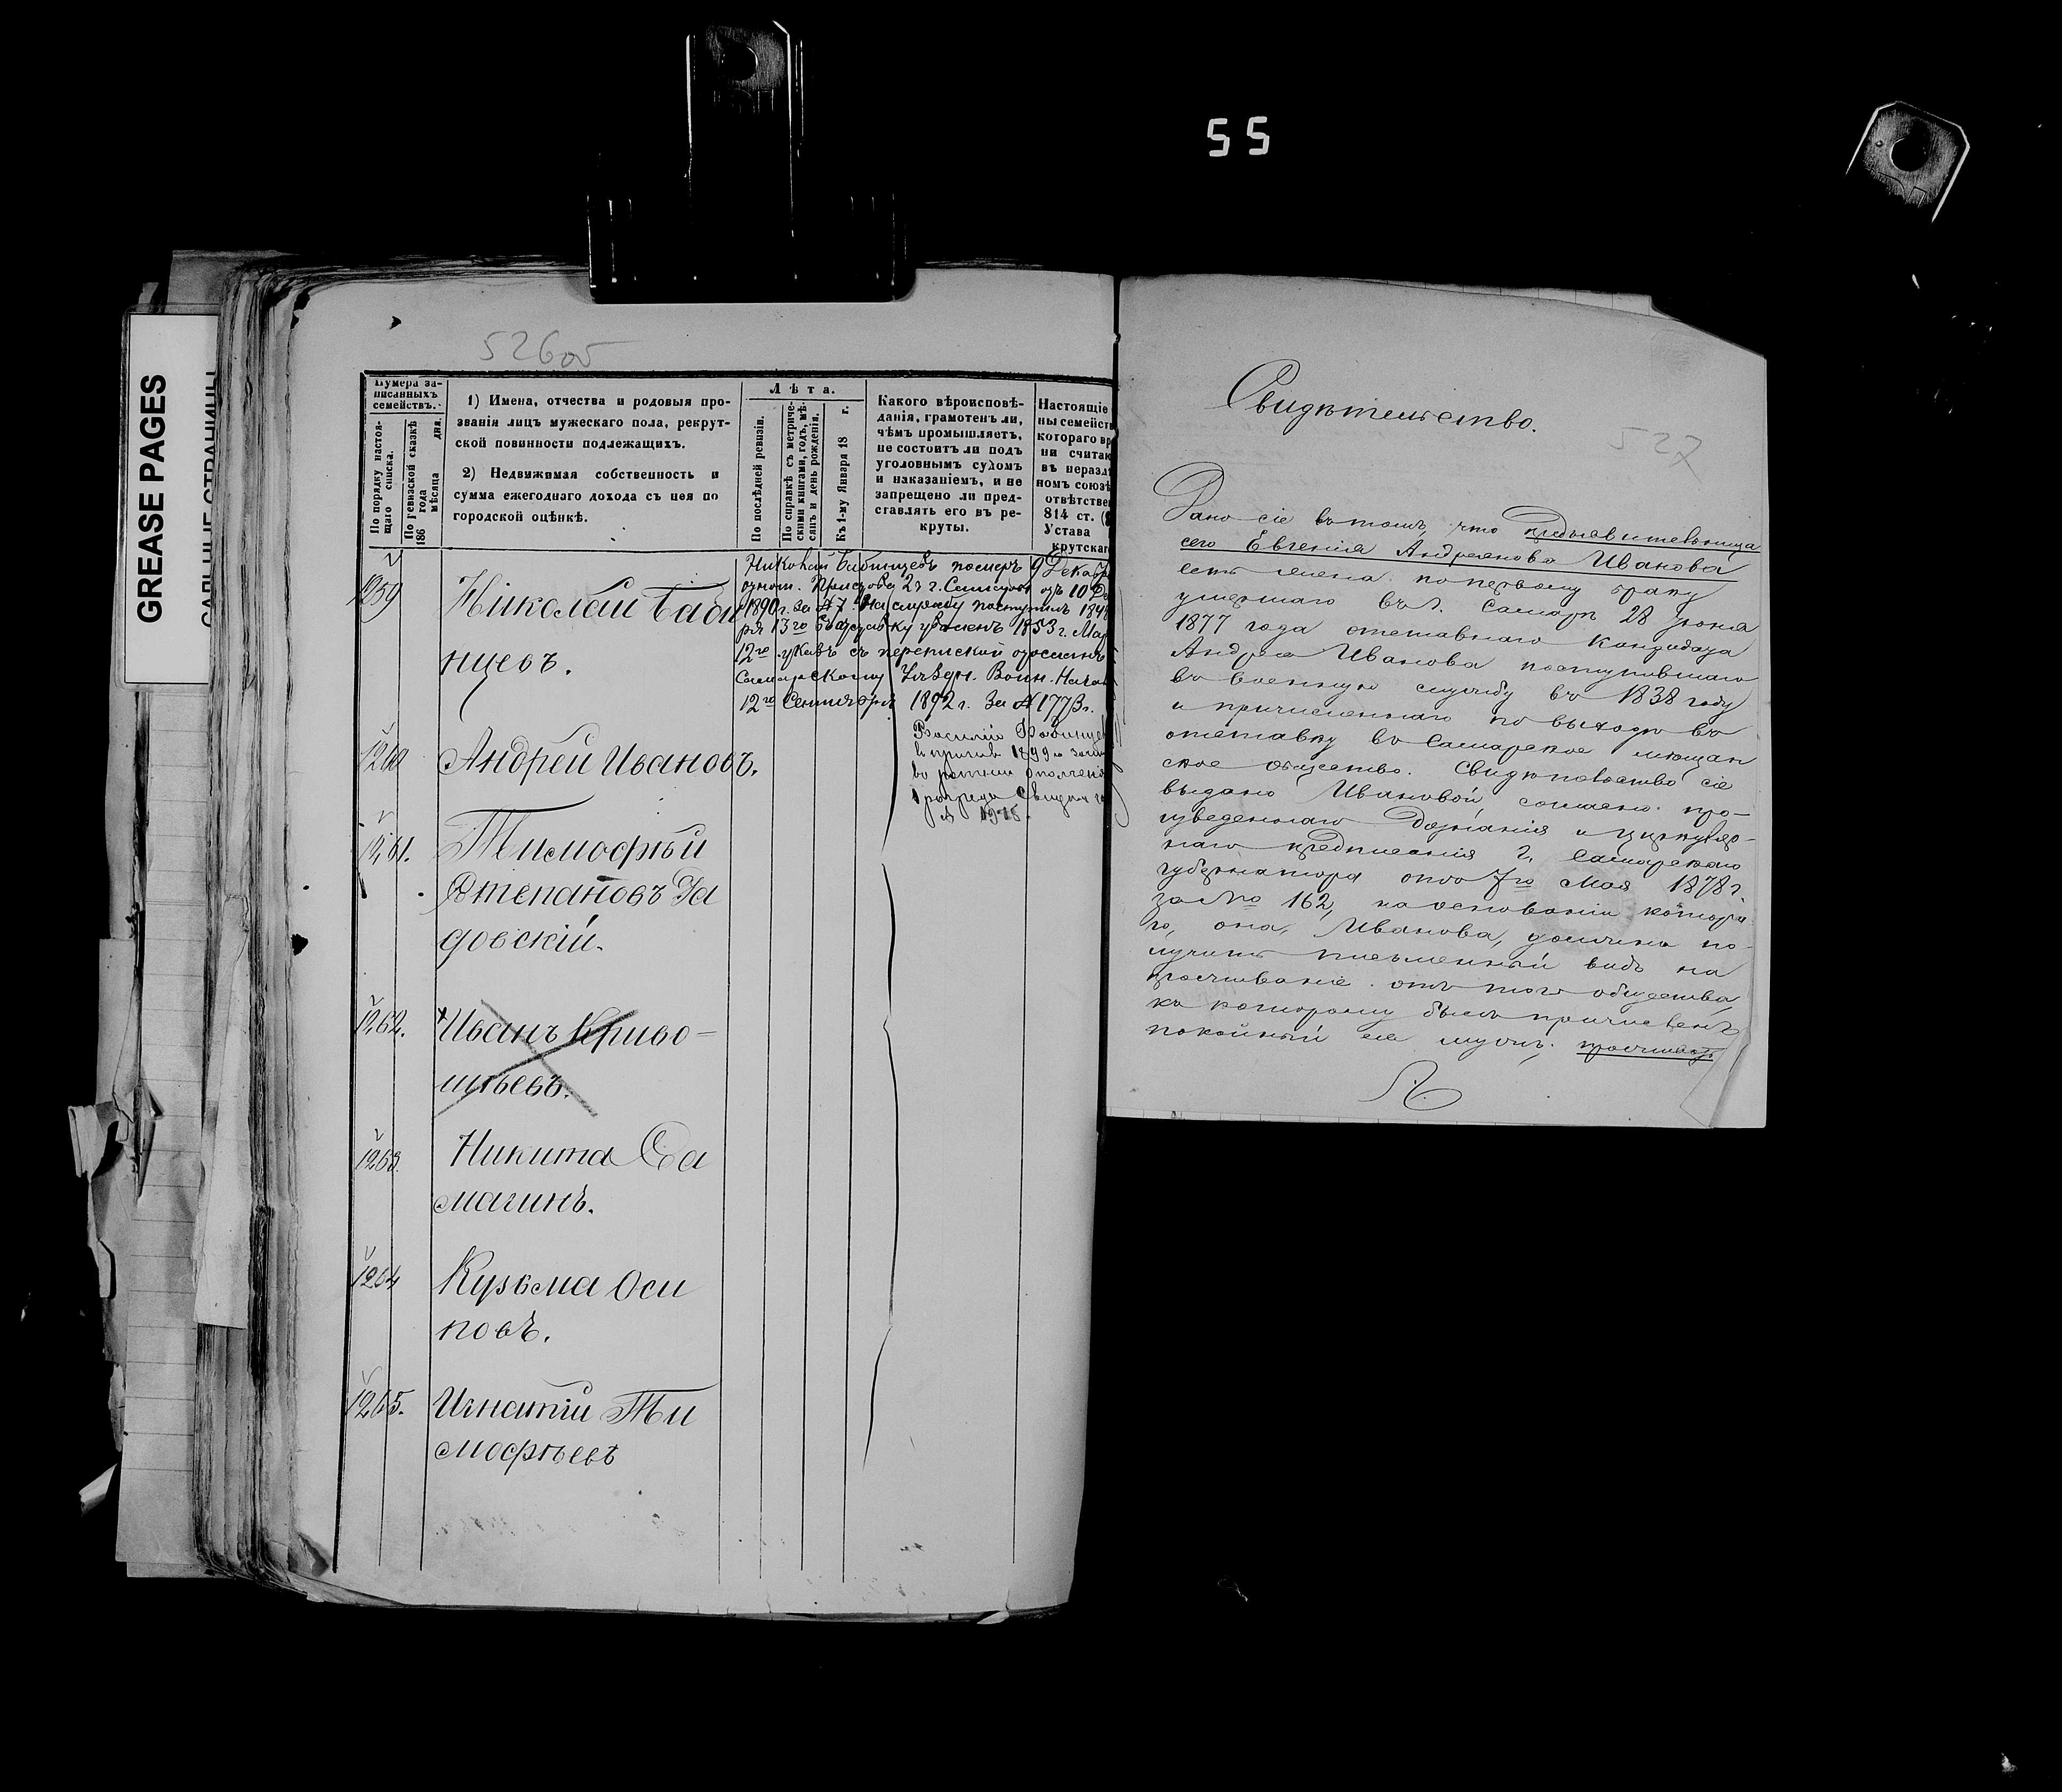 55
GREASE PAGES
526об
Нумера за-
писанныхъ
семействъ.
По порядку настоя-
щаго списка.
По ревизской сказкѣ
186 года мѣсяца дня.
1) Имена, отчества и родовыя про-
званія лицъ мужескаго пола, рекрут-
ской повинности подлежащихъ.
2) Недвижимая собственность и
сумма ежегоднаго дохода съ нея по
городской оцѣнкѣ.
Лѣта.
По послѣдней ревизіи.
По справкѣ съ метриче-
скими книгами, годъ, мѣ-
сяцъ и день рожденія.
Къ 1-му Января 18 г.
Какого вѣроисповѣ-
данія, грамотенъ ли,
чѣмъ промышляетъ,
не состоитъ ли подъ
уголовнымъ судомъ
и наказаніемъ, и не
запрещено ли пред-
ставлять его въ ре-
круты.
Настоящіе
ны семейств
котораго вр
ни считаю
въ неразд
номъ союзѣ
отвѣтствен
814 ст.
Устава
крутскаг
1259
Николай Баби
нцевъ.
Николай Бабинцевъ померъ 9 Декабр
Пристава 2 ч г. Самары отъ 10 Де
1890 г. за № 7. На службу поступилъ 184
ря 13го въ отставку уволенъ 1853 г. Мар
12го указъ съ перепиской отосланъ
Самарскому Уѣздн. Воин. Нача
12го Сентября 1892 г. за № 1773.
1260
Андрей Ивановъ.
Василій Бабинце
въ призывъ 1899 г. зачи
въ ратники ополчен
1 разряда Свидет
1261.
Тимофѣй
Степановъ Га
довскій.
1262.
Иванъ Криво-
шѣевъ.
1263.
Никита Са
магинъ.
1264
Кузьма Оси
повъ.
1265.
Игнатій Ти
мофѣевъ
Свидѣтельство.
527
Дано сіе въ томъ, что предъявительница
сего Евгенія Андреянова Иванова
есть жена по первому браку
умершаго въ г. Самарѣ 28 Іюня
1877 года отставнаго Кандидата
Андрея Иванова поступившаго
въ военную службу въ 1838 году
и причисленнаго по выходѣ въ
отставку въ Самарское мѣщан
ское общество. Свидѣтельство сіе
выдано Ивановой, согласно про-
изведеннаго дознанія и циркуляр-
наго предписанія Г. Самарскаго
Губернатора отъ 7го Мая 1878 г.
за № 162, на основаніи котора
го, она, Иванова, должна по-
лучить письменный видъ на
проживаніе отъ того общества,
къ которому былъ причисленъ
покойный ея мужъ;